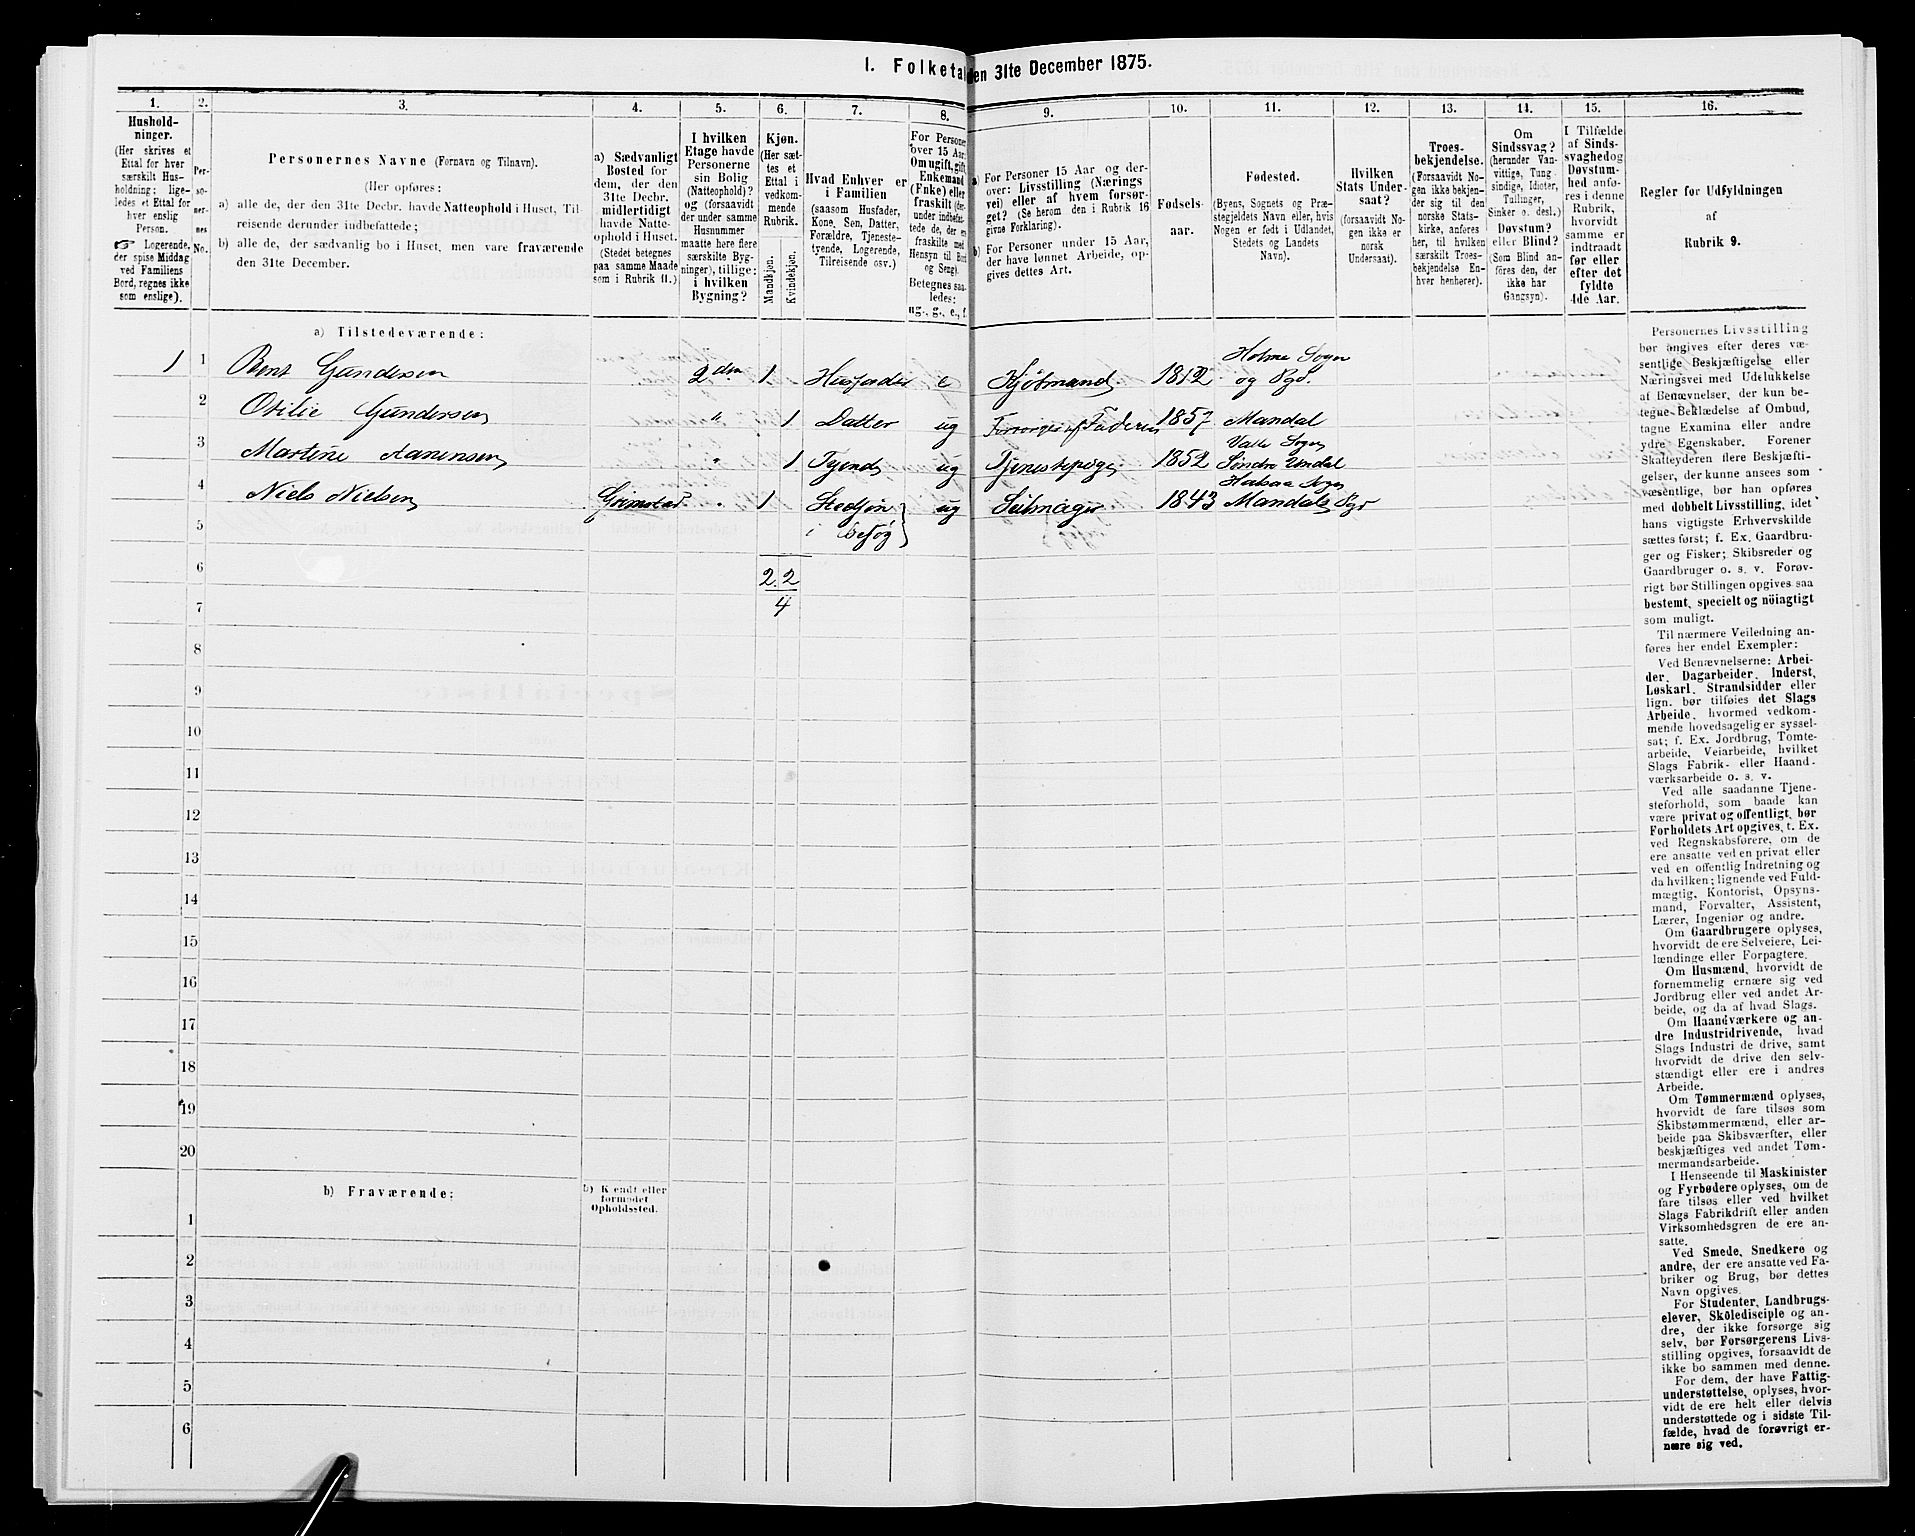 1. Folketal den 31te December 1875.
1. 2. 3. 4. 5. 6. 7. 8. 9. 10. 11. 12. 13. 14. 15. 16.
Hushold-
ninger.
(Her skrives et
Ettal for hver
særskilt Hus-
holdning; lige-
ledes et Ettal for
hver enslig
Person.
☞ Logerende,
der spise Middag
ved Familiens
Bord, regnes ikke
som enslige).
Per-
so-
ner-
nes
No.
Personernes Navne (Fornavn og Tilnavn).
(Her opføres:
a) alle de, der den 31te Decbr. havde Natteophold i Huset, Til-
reisende derunder indbefattede;
b) alle de, der sædvanlig bo i Huset, men vare fraværende
den 31te December.
a) Sædvanligt
Bosted for
dem, der den
31te Decbr.
midlertidigt
havde Natte-
ophold i Huset.
(Stedet betegnes
paa samme Maade
som i Rubrik 11.)
I hvilken
Etage havde
Personerne
sin Bolig
(Natteophold)?
og (forsaavidt
der under samme
Husnummer
maatte høre flere
særskilte Byg-
ninger), tillige:
i hvilken
Bygning?
Kjøn.
(Her sæt-
tes et
Ettal i
vedkom-
mende
Rubrik.
Mandkjøn.
Kvindekjøn.
Hvad Enhver er
i Familien
(saasom Husfader,
Kone, Søn, Datter,
Forældre, Tjeneste-
tyende, Logerende,
Tilreisende osv.)
For Personer
over 15 Aar:
Om ugift, gift,
Enkemand
(Enke) eller
fraskilt
Hensyn til Bord
og Seng).
Betegnes saa-
ledes:
ug., g., e., f.
a) For Personer 15 Aar og der-
over: Livsstilling (Nærings
vei) eller af hvem forsør-
get? (Se herom den i Rubrik 16
givne Forklaring).
b) For Personer under 15 Aar,
der have lønnet Arbeide, op-
gives dettes Art.
Fødsels-
aar.
Fødested.
(Byens, Sognets og Præ-
stegjeldets Navn eller, hvis
Nogen er født i Udlandet,
Stedets og Landets
Navn).
Hvilken
Stats Under-
saat?
(forsaavidt No-
gen ikke er
norsk
Undersaat).
Troes-
bekjendelse.
(Forsaavidt No-
gen ikke bekjen-
der sig til den
norske Stats-
kirke, anføres
her, til hvilken
særskilt Troes-
bekjendelse En-
hver henhører).
Om
Sindssvag?
(herunder Van-
vittige, Tung-
sindige, Idioter,
Tullinger,
Sinker o. desl.)
Døvstum?
eller Blind?
(Som Blind an-
føres den, der
ikke har
Gangsyn).
I Tilfælde
af Sinds-
svaghed og
Døvstum-
hed anfø-
res i denne
Rubrik,
hvorvidt
samme er
indtraadt
før eller
efter det
fyldte
4de Aar.
Regler for Udfyldningen
af
Rubrik 9.
a) Tilstedeværende:
1 1 Bent Gundersen 2den 1 Husfader e Kjøbmand 1812 Holme Sogn
og Pgd.
2 Otilie Gundersen " 1 Datter ug Forsørges af Faderen 1857 Mandal
3 Martine Aanensen " 1 Tyende ug Tjenestepige 1852 Valle Sogn
Søndre Undal
4 Niels Nielsen Grimstad " 1 Stedsøn
i Besøg ug Seilmager 1843 Halsaa Sogn
Mandals Pgd
5
6 2. 2
7 4
8
9
10
11
12
13
14
15
16
17
18
19
20
b) Fraværende:
b) Kjendt eller
formodet
Opholdssted.
1
2
3
4
5
6
Personernes Livsstilling
bør angives efter deres væ-
sentlige Beskjæftigelse eller
Næringsvei med Udelukkelse
af Benævnelser, der kun be-
tegne Beklædelse af Ombud,
tagne Examina eller andre
ydre Egenskaber. Forener
Skatteyderen flere Beskjæfti-
gelser, der kunne ansees som
væsentlige, bør han opføres
med dobbelt Livsstilling, idet
hans vigtigste Erhvervskilde
sættes først; f. Ex. Gaardbru-
ger og Fisker; Skibsreder og
Gaardbruger o. s. v. Forøv-
rigt bør Stillingen opgives saa
bestemt, specielt og nöiagtigt
som muligt.
Til nærmere Veiledning an-
føres her endel Exempler:
Ved Benævnelserne: Arbei-
der, Dagarbeider, Inderst,
Løskarl, Strandsidder eller
lign. bør tilføies det Slags
Arbeide, hvormed vedkom-
mende hovedsagelig er syssel-
sat; f. Ex. Jordbrug, Tomte-
arbeide, Veiarbeide, hvilket
Slags Fabrik- eller Haand-
værksarbeide o. s. v.
Ved alle saadanne Tjene-
steforhold, som baade kan
være privat og offentligt, bør
Forholdets Art opgives, t. Ex.
ved Regnskabsførere, om de
ere ansatte ved en privat eller
ved en offentlig Indretning og
da hvilken; lignende ved Fuld-
mægtig, Kontorist, Opsyns-
mand, Forvalter, Assistent,
Lærer, Ingeniør og andre.
Om Gaardbrugere oplyses,
hvorvidt de ere Selveiere, Lei-
lændinge eller Forpagtere.
Om Husmænd, hvorvidt de
fornemmelig ernære sig ved
Jordbrug eller ved andet Ar-
beide, og da af hvad Slags.
Om Haandværkere og an-
dre Industridrivende, hvad
Slags Industri de drive, samt
hvorvidt de drive den selv-
stændigt eller ere i andres
Arbeide.
Om Tømmermænd oplyses,
hvorvidt de fare tilsøs som
Skibstømmermænd, eller ar-
beide paa Skibsværfter, eller
beskjæftiges ved andet Tøm-
mermandsarbeide.
I Henseende til Maskinister
og Fyrbødere oplyses, om de
fare tilsøs eller ved hvilket
Slags Fabrikdrift eller anden
Virksomhedsgren de ere an-
satte.
Ved Smede, Snedkere og
andre, der ere ansatte ved Fa-
briker og Brug, bør dettes
Navn opgives.
For Studenter, Landbrugs-
elever, Skoledisciple og an-
dre, der ikke forsørge sig
selv, bør Forsørgerens Livs-
stilling opgives, forsaavidt de
ikke bo sammen med denne.
For dem, der have Fattig-
understøttelse, oplyses, hvor-
vidt de ere helt eller delvis
understøttede og i sidste Til-
fælde, hvad de forøvrigt er-
nære sig ved.